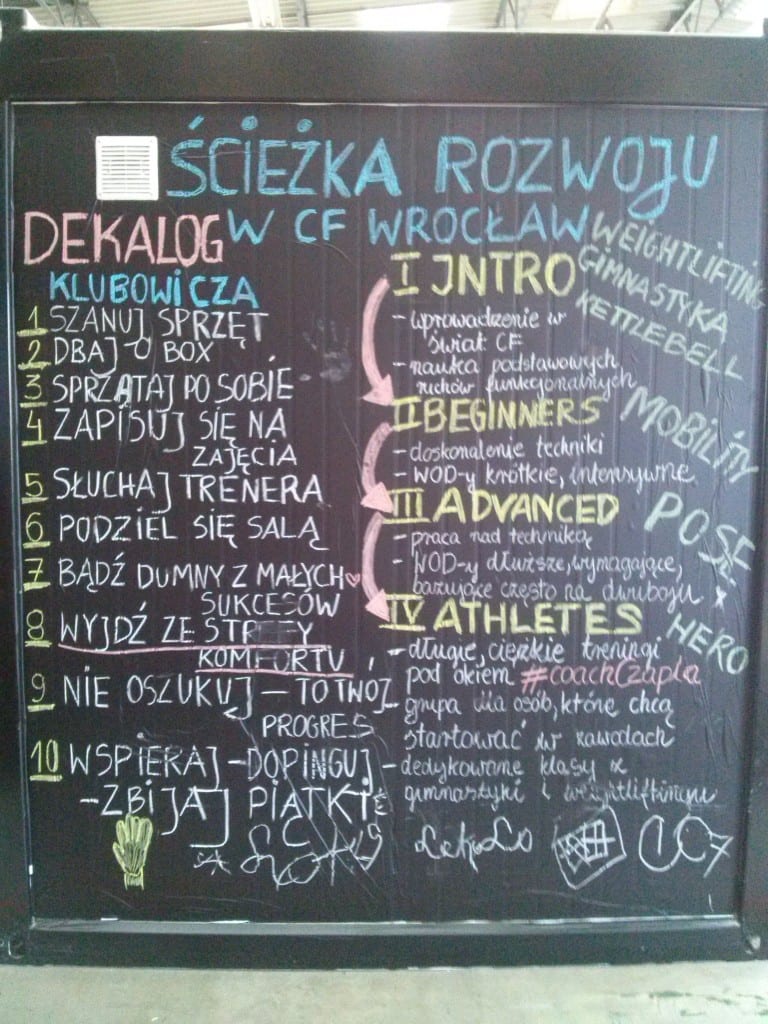 ŚCIEŻKA ROZWOJU
W CF WROCŁAW
DEKALOG
KLUBOWICZA
1 SZANUJ SPRZĘT
2 DBAJ O BOX
3 SPRZĄTAJ PO SOBIE
4 ZAPISUJ SIĘ NA
ZAJĘCIA
5 SŁUCHAJ TRENERA
6 PODZIEL SIĘ SALĄ
7 BĄDŹ DUMNY Z MAŁYCH
SUKCESÓW
8 WYJDŹ ZE STREFY
KOMFORTU
9 NIE OSZUKUJ – TO TWÓJ
PROGRES
10 WSPIERAJ – DOPINGUJ
– ZBIJAJ PIĄTKI
I INTRO
- wprowadzenie w
świat CF
- nauka podstawowych
ruchów funkcjonalnych
II BEGINNERS
- doskonalenie techniki
- WOD-y krótkie, intensywne
III ADVANCED
- praca nad techniką
- WOD-y dłuższe, wymagające,
bazujące często na dwuboju
IV ATHLETES
- długie, ciężkie treningi
pod okiem #coachCzapla
- grupa dla osób, które chcą
startować w zawodach
- dedykowane klasy z
gimnastyki i weightliftingu
WEIGHTLIFTING
GIMNASTYKA
KETTLEBELL
MOBILITY
POSE
HERO